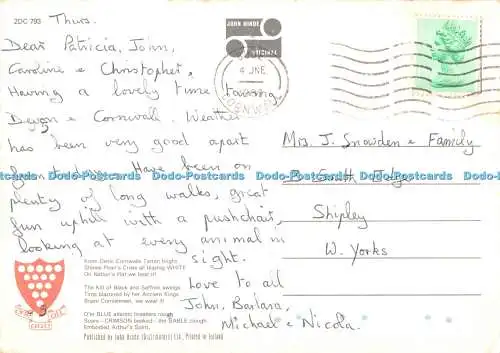 2DC 793
Thurs.
Dear Patricia, John,
Caroline & Christopher,
Having a lovely time touring
Devon & Cornwall. Weather
has been very good apart
from today. Have been on
plenty of long walks, great
fun uphill with a pushchair,
looking at every animal in
sight.
Love to all
John, Barbara,
Michael & Nicola.
JOHN HINDE
ORIGINAL
4 JNE
CORNWALL
Mrs. J. Snowden & Family
Shipley
W. Yorks
Dodo-Postcards Dodo-Postcards Dodo-Postcards Dodo-Postcards
From Celtic Cornwalls Tartan bright
Shines Piran's Cross of blazing WHITE
On Nation's Flat we bear it!
The Kilt of Black and Saffron swings
Tints blazoned by her Ancient Kings
Brave Cornishmen, we wear it!
O'er BLUE atlantic breakers rough
Soars - CRIMSON beaked - the SABLE chough
Embodied Arthur's Spirit.
ONE AND ALL
Published by John Hinde (Distributors) Ltd., Printed in Ireland